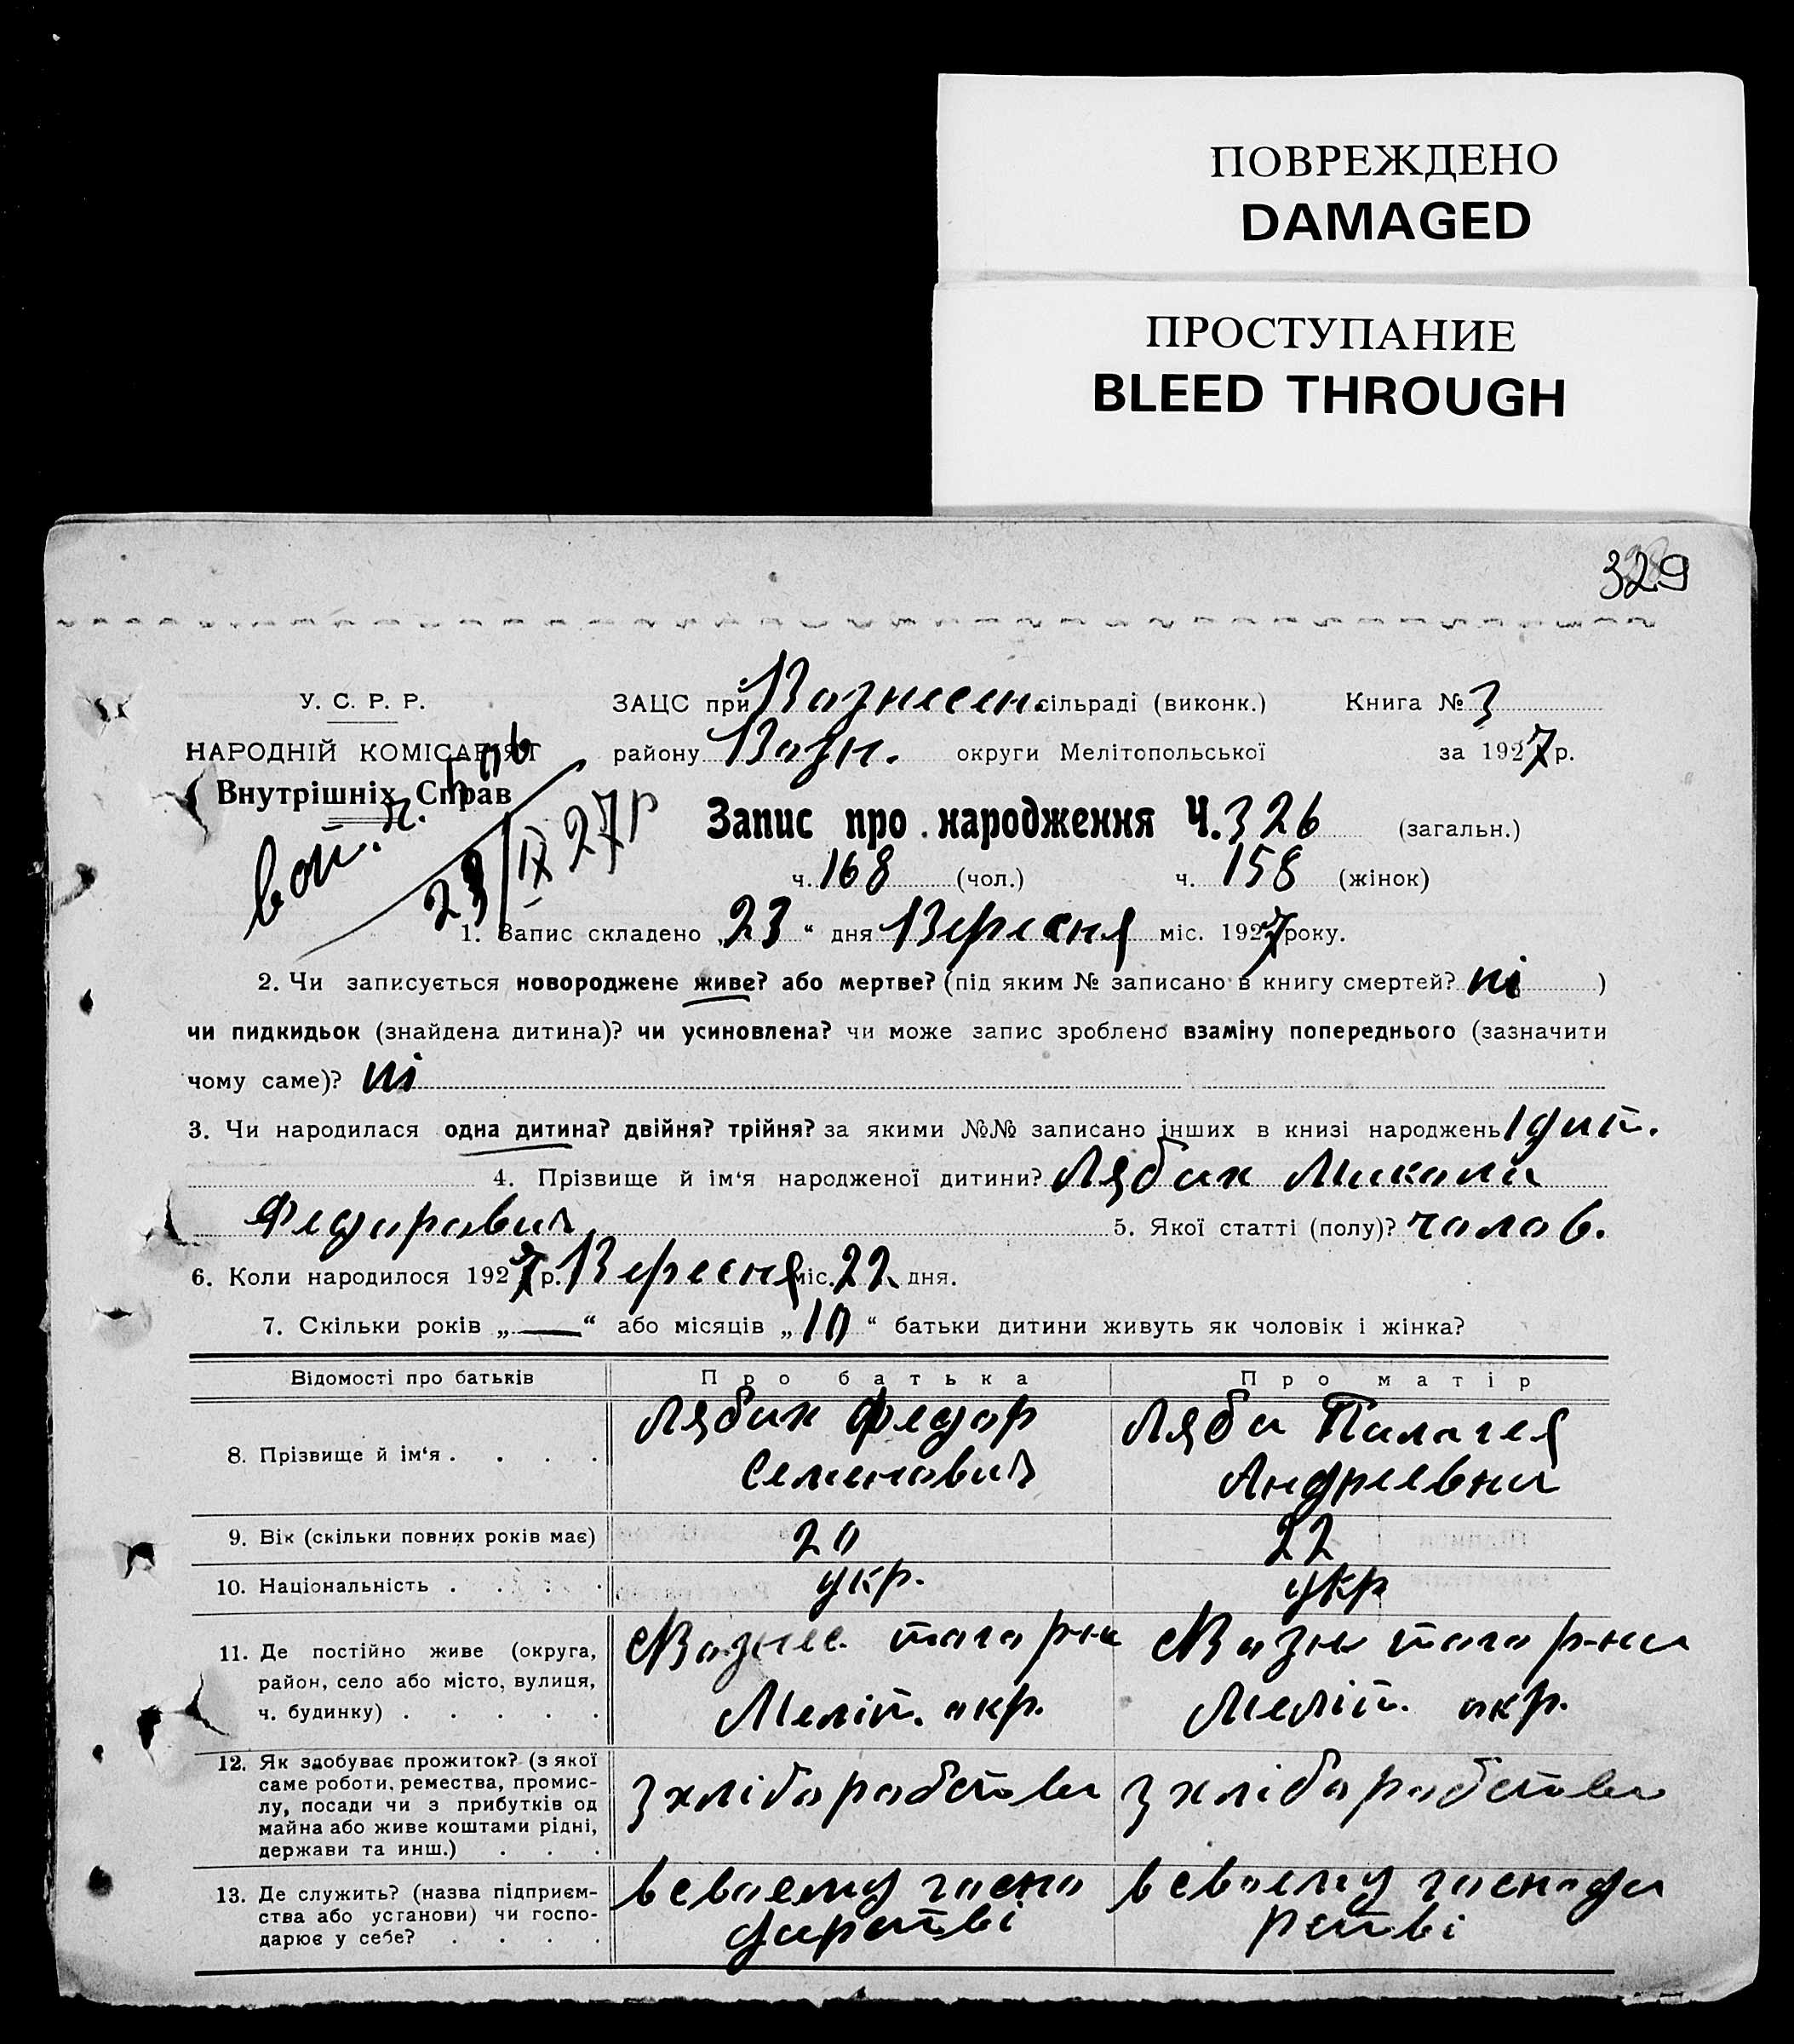 ПОВРЕЖДЕНО
DAMAGED
ПРОСТУПАНИЕ
BLEED THROUGH
329
У. С. Р. Р.
НАРОДНІЙ КОМІСАРІЯТ
Внутрішніх Справ
23/IX 27р
ЗАЦС при Вознесен. сільраді (виконк.) Книга № 3
району Возн. округи Мелітопольської за 1927 р.
Запис про народження Ч. 326 (загальн.)
ч. 168 (чол.) ч. 158 (жінок)
1. Запис складено „23“ дня Вересня міс. 1927 року.
2. Чи записується новороджене живе? або мертве? (під яким № записано в книгу смертей? ні )
чи пидкидьок (знайдена дитина)? чи усиновлена? чи може запис зроблено взаміну попереднього (зазначити
чому саме)? ні
3. Чи народилася одна дитина? двійня? трійня? за якими №№ записано інших в книзі народжень 1 дит.
4. Прізвище й ім‘я народженої дитини? Лябах Микола
Федорович 5. Якої статті (полу)? чолов.
6. Коли народилося 1927 р. Вересня міс. 22 дня.
7. Скільки років „—“ або місяців „10“ батьки дитини живуть як чоловік і жінка?
Відомості про батьків Про батька Про матір
8. Прізвище й ім‘я . . . . Лябах Федор Ляба Палагея
Семенович Андреевна
9. Вік (скільки повних років має) 20 22
10. Національність . . . . укр. укр
11. Де постійно живе (округа, Вознес. того р-на Возн того р-на
район, село або місто, вулиця, Меліт. окр. Меліт. окр.
ч. будинку) . . . . .
12. Як здобуває прожиток? (з якої
саме роботи, ремества, промис-
лу, посади чи з прибутків од З хліборобства З хліборобства
майна або живе коштами рідні,
держави та инш.) . . .
13. Де служить? (назва підприєм- в своему госпо в своему господа
ства або установи) чи госпо- дарстві рстві
дарює у себе? . . . .